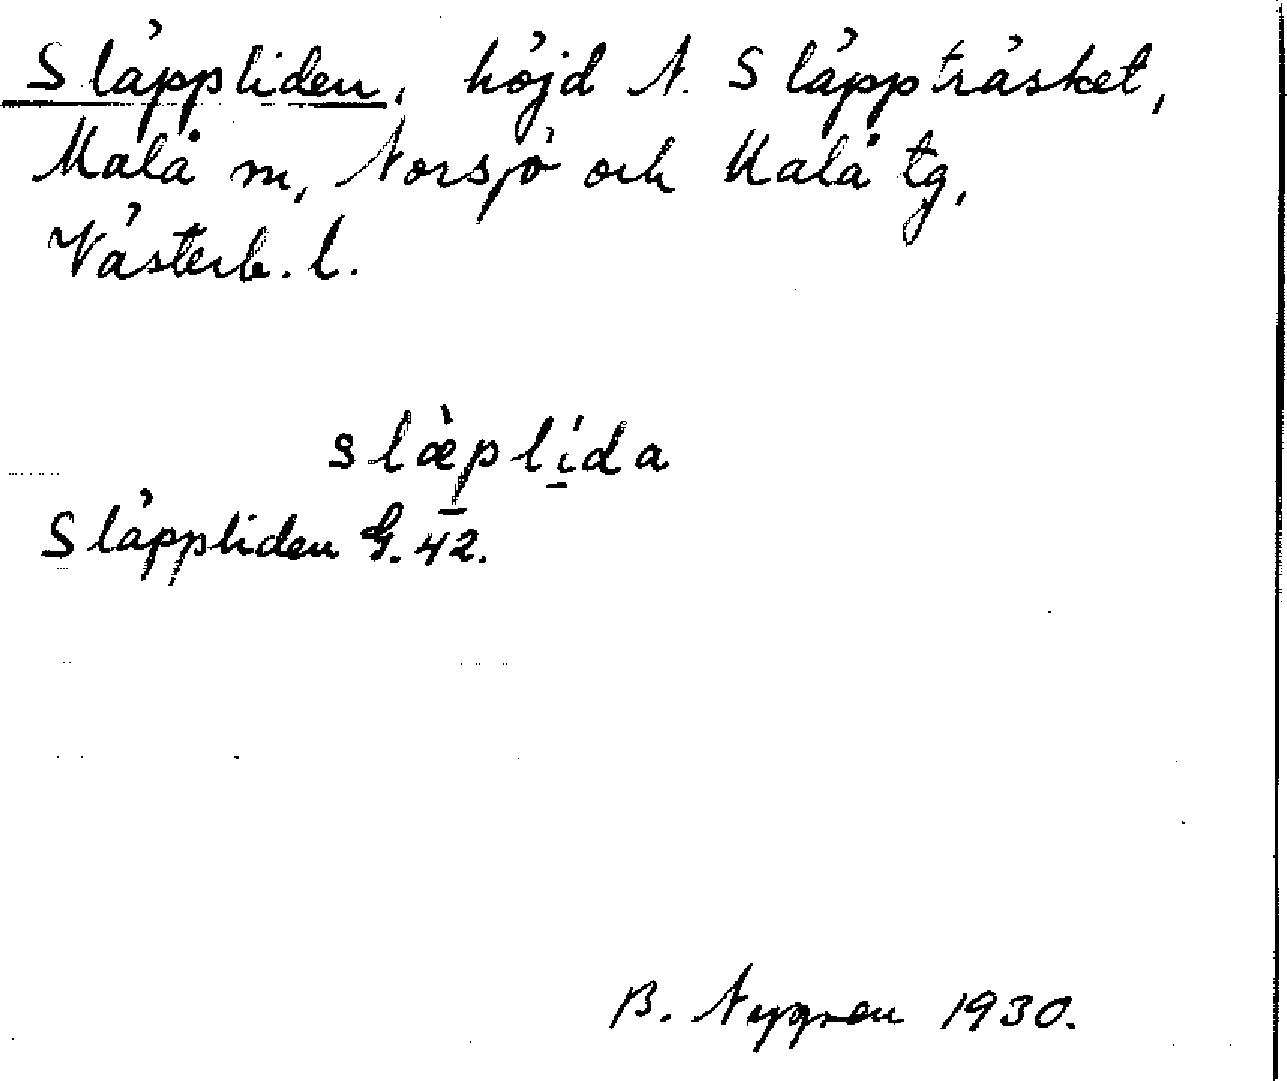 Släppliden, höjd N. Släppträsket,
Malå sn, Norsjö och Malå tg,
Västerb. l.
slæ̀plída
Släppliden G. 42.
B. Nygren 1930.